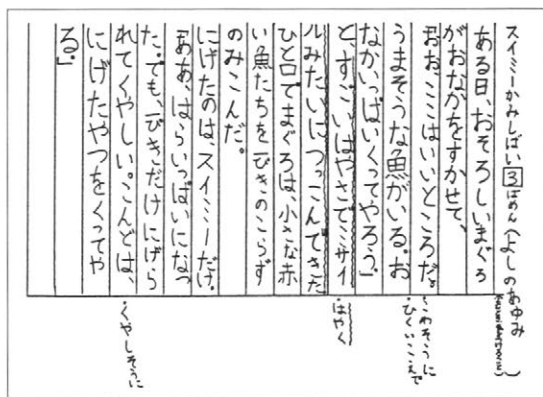 スイミーかみしばい 3 ばめん（よしのあゆみ）
ある日、おそろしいまぐろ
がおなかをすかせて、
「おお、ここはいいところだぞ。
うまそうな魚がいる。お
なかいっぱいくってやろう」
と、すごいはやさでミサイ
ルみたいにつっこんできた。
ひと口でまぐろは、小さな赤
い魚たちを一ぴきのこらず
のみこんだ。
にげたのは、スイミーだけ。
「ああ、はらいっぱいになっ
た。でも、一ぴきだけにげら
れてくやしい。こんどは、
にげたやつをくってや
る。」
・こわそうに
ひくいこえで
・はやく
・くやしそうに